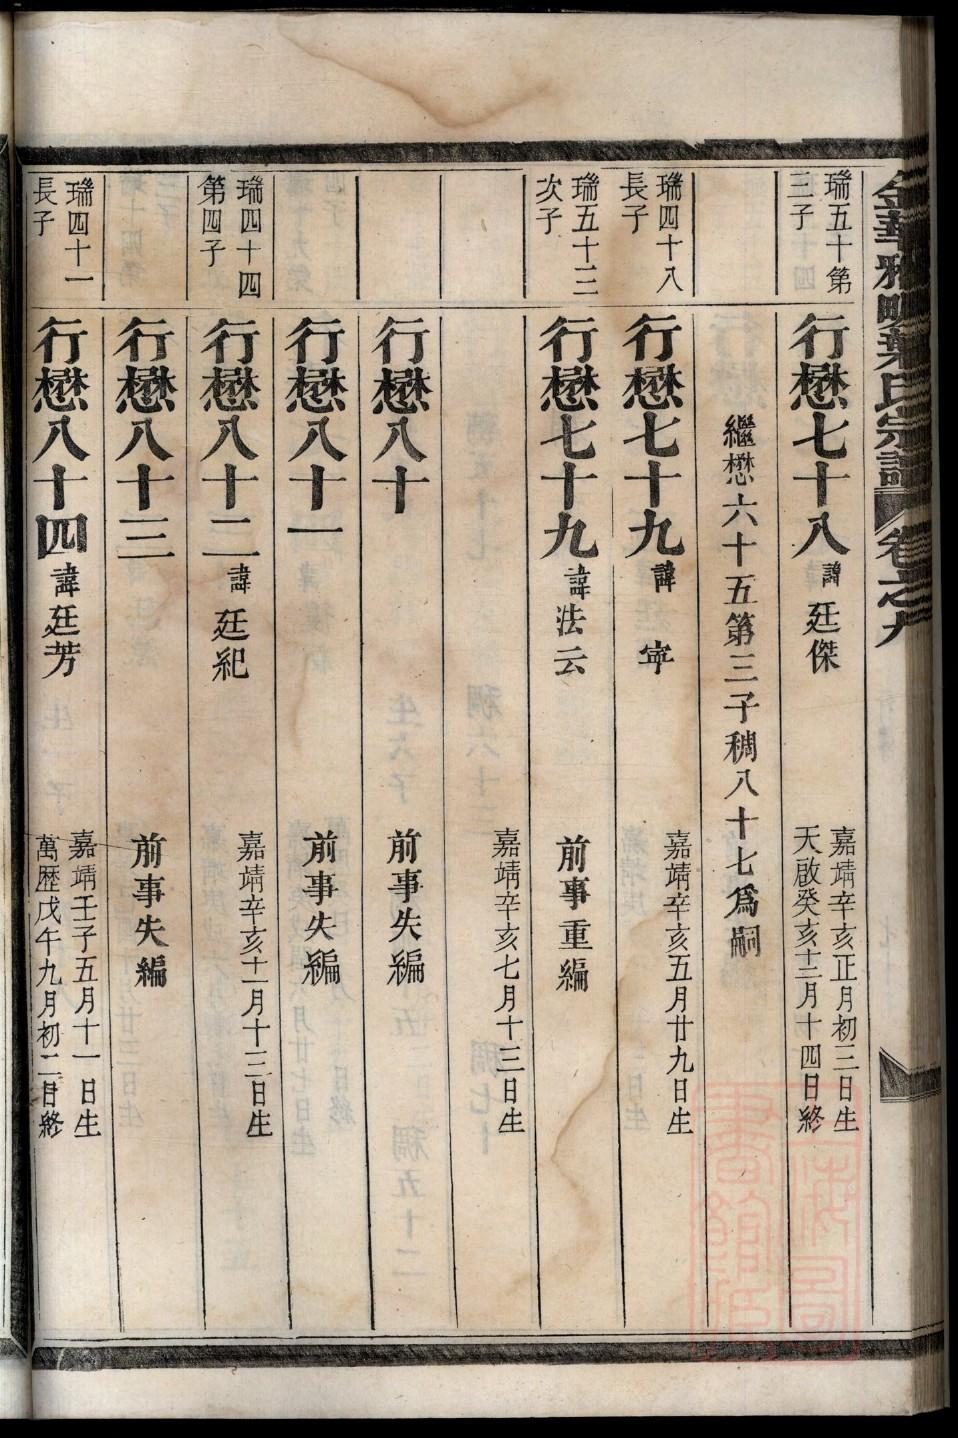 金華雅畈葉氏宗譜 卷之九
瑞五十第三子
行懋七十八 諱廷傑
嘉靖辛亥正月初三日生
天啟癸亥十二月十四日終
繼懋六十五第三子稠八十七為嗣
瑞四十八長子
行懋七十九 諱寧
嘉靖辛亥五月廿九日生
瑞五十三次子
行懋七十九 諱法云
前事重編
嘉靖辛亥七月十三日生
行懋八十
前事失編
行懋八十一
前事失編
瑞四十四第四子
行懋八十二 諱廷紀
嘉靖辛亥十一月十三日生
行懋八十三
前事失編
瑞四十一長子
行懋八十四 諱廷芳
嘉靖壬子五月十一日生
萬歷戊午九月初二日終